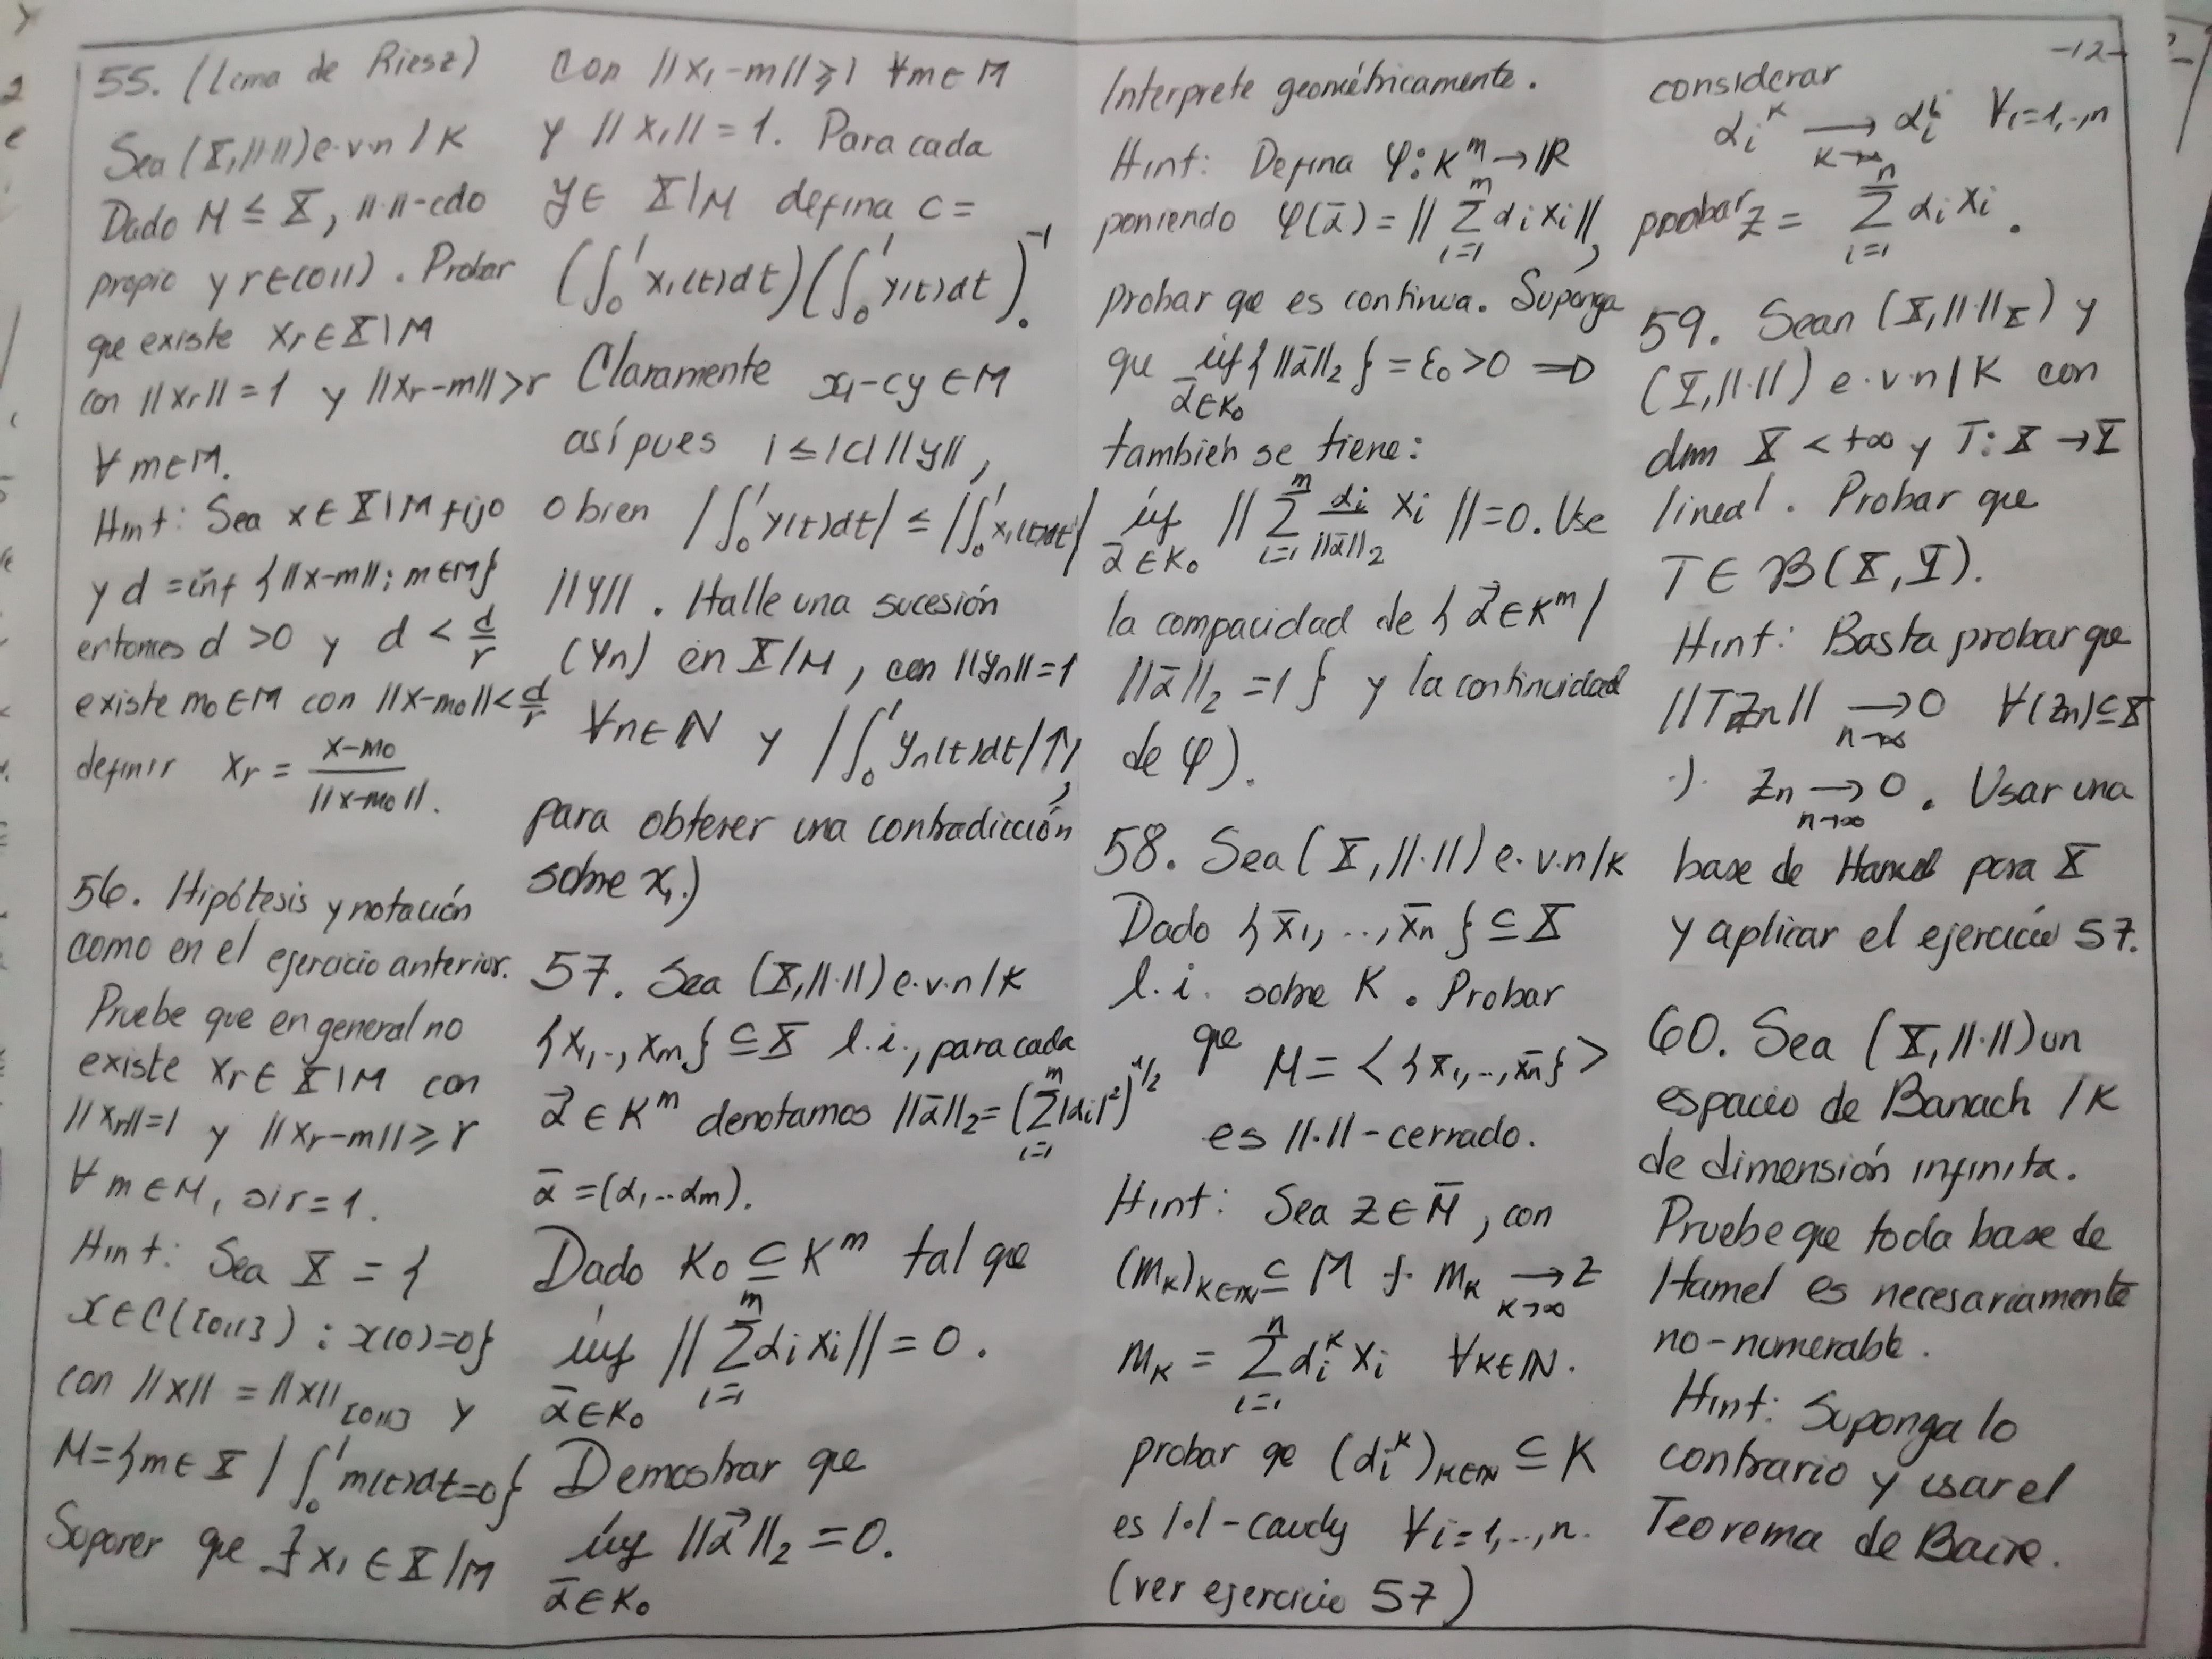 -12-
55. (Lema de Riesz)
Sea (X, || ||) e.v.n / K
Dado M ≤ X, ||·||-cdo
propio y r∈(0,1). Probar
que existe Xr ∈ X\M
con ||Xr|| = 1 y ||Xr-m||>r
∀ m∈M.
Hint: Sea x∈X\M fijo
y d = inf {||x-m||; m∈M}
entonces d >0 y d < d/r
existe m0∈M con ||x-m0||< d/r
definir Xr = x-m0 / ||x-m0||.
56. Hipótesis y notación
como en el ejercicio anterior.
Pruebe que en general no
existe Xr∈ X\M con
||Xr||=1 y ||Xr-m||⩾ r
∀ m∈M, si r=1.
Hint: Sea X = {
x∈C([0,1]) : x(0)=0}
con ||x|| = ||x||[0,1] y
M={m∈ X / ∫₀¹ m(t)dt=0}
Suponer que ∃ x₁ ∈ X/M
con ||x₁-m||⩾1 ∀m∈M
y ||x₁||=1. Para cada
y∈ X\M defina c=
(∫₀¹ x₁(t)dt)(∫₀¹ y(t)dt)⁻¹.
Claramente x₁-cy∈M
así pues 1≤|c| ||y||,
o bien |∫₀¹ y(t)dt| ≤ |∫₀¹ x₁(t)dt|
||y||. Halle una sucesión
(yn) en X/M, con ||yn||=1
∀n∈ℕ y |∫₀¹ yn(t)dt|↑1,
para obtener una contradicción
sobre x₁.)
57. Sea (X, ||·||) e.v.n/K
{x₁,.., xm} ⊆ X l.i., para cada
α⃗ ∈ Kᵐ denotamos ||ᾱ||₂= (∑ᵢ₌₁ᵐ |αi|²)^1/2
ᾱ =(α₁...αm).
Dado K₀ ⊆ Kᵐ tal que
inf ᾱ∈K₀ ||∑ᵢ₌₁ᵐ αi xi|| = 0.
Demostrar que
inf ᾱ∈K₀ ||α⃗||₂ = 0.
Interprete geométricamente.
Hint: Defina φ: Kᵐ → ℝ
poniendo φ(ᾱ) = ||∑ᵢ₌₁ᵐ αi xi||,
probar que es continua. Suponga
que inf ᾱ∈K₀ {||ᾱ||₂} = ε₀ >0 ⇒
también se tiene:
inf ᾱ∈K₀ ||∑ᵢ₌₁ᵐ αi/||ᾱ||₂ xi|| =0. Use
la compacidad de {α⃗ ∈ Kᵐ /
||ᾱ||₂ =1} y la continuidad
de φ).
58. Sea (X, ||·||) e.v.n/K
Dado {x̄₁, .., x̄n} ⊆ X
l.i. sobre K. Probar
que M = <{x̄₁,.., x̄n}>
es ||·||-cerrado.
Hint: Sea z∈M̄, con
(mk)k∈ℕ ⊆ M ∙∕∙ mk → z k→∞
mk = ∑ᵢ₌₁ⁿ αiᵏ xi ∀k∈ℕ.
probar qe (αiᵏ)k∈ℕ ⊆ K
es |·|-caudy ∀i=1,..,n.
(ver ejercicio 57)
considerar
αiᵏ → αi k→∞ ∀i=1,..,n
probar z = ∑ᵢ₌₁ⁿ αi xi.
59. Sean (X, ||·||X) y
(Y, ||·||) e.v.n/K con
dim X < +∞ y T: X → Y
lineal. Probar que
T∈ B(X, Y).
Hint: Basta probar que
||Tzn|| → 0 n→∞ ∀(zn)⊆X
·)· zn → 0 n→∞. Usar una
base de Hamel para X
y aplicar el ejercicio 57.
60. Sea (X, ||·||) un
espacio de Banach /K
de dimensión infinita.
Pruebe que toda base de
Hamel es necesariamente
no-numerable.
Hint: Suponga lo
contrario y usar el
Teorema de Baire.